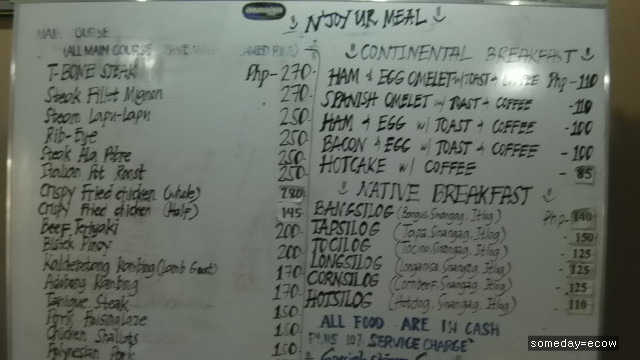 N'JOY UR MEAL
MAIN COURSE
(ALL MAIN COURSE
T-BONE STEAK Php-270-
Steak Fillet Mignon 270-
Steam Lapu-lapu 250-
Rib-Eye 250-
Steak Ala Pobre 250-
Italian Pot Roast 250-
Crispy Fried chicken (whole) 280
Crispy Fried chicken (Half) 145
Beef Teriyaki 200-
Bistek Pinoy 200
Kambing (Lamb Goat) 170
Adobong Kambing 170-
Steak 150
150
Chicken 150
Polynesian Pork
CONTINENTAL BREAKFAST
HAM & EGG OMELET w/ TOAST & COFFEE Php-110
SPANISH OMELET w/ TOAST & COFFEE -110
HAM & EGG w/ TOAST & COFFEE -100
BACON & EGG w/ TOAST & COFFEE -100
HOTCAKE w/ COFFEE - 85
NATIVE BREAKFAST
BANGSILOG (Bangus, Sinangag, Itlog) Php-140
TAPSILOG (Tapa, Sinangag, Itlog) - 150
TOCILOG (Tocino, Sinangag, Itlog) - 125
LONGSILOG (Longanisa, Sinangag, Itlog) - 125
CORNSILOG (Cornbeef, Sinangag, Itlog) - 125
HOTSILOG (Hotdog, Sinangag, Itlog) - 110
ALL FOOD ARE IN CASH
PLUS 10% SERVICE CHARGE
someday=ecow